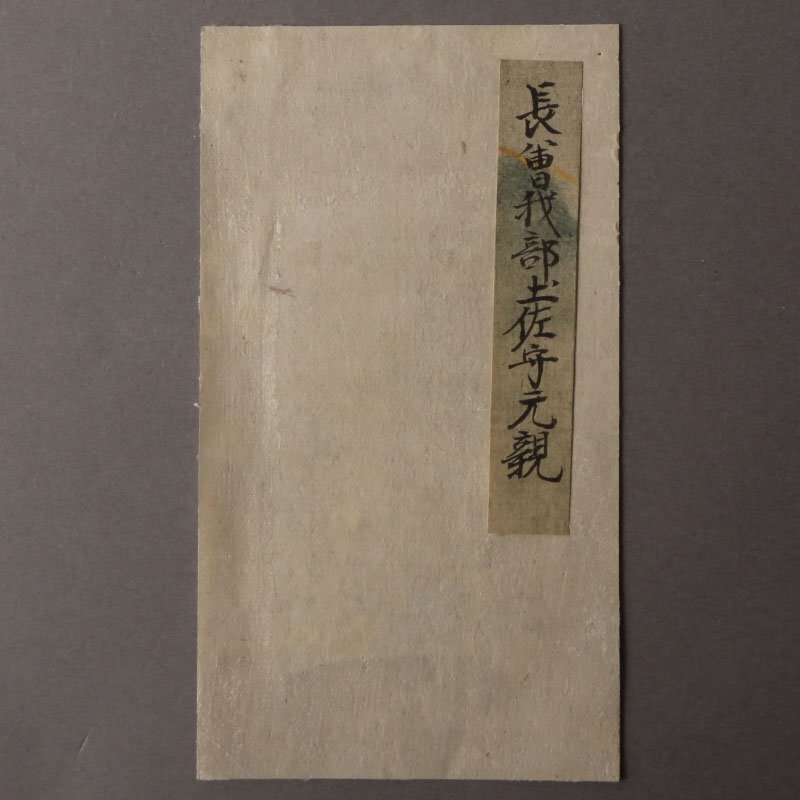 長曽我部土佐守元親